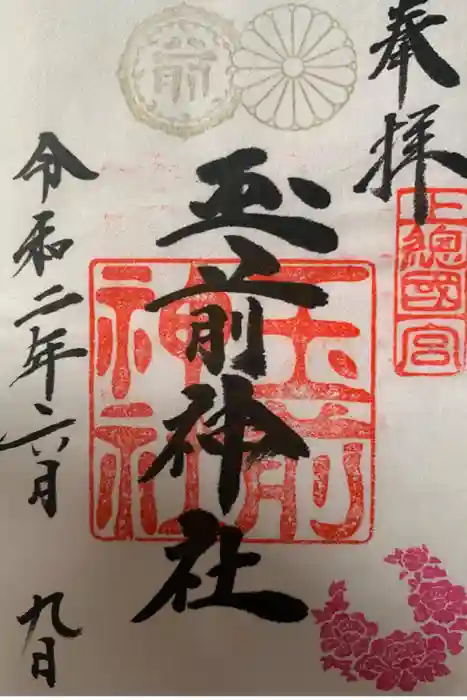 奉拝
上總國一宮
玉前神社
玉前
神社
前
令和二年六月
九日